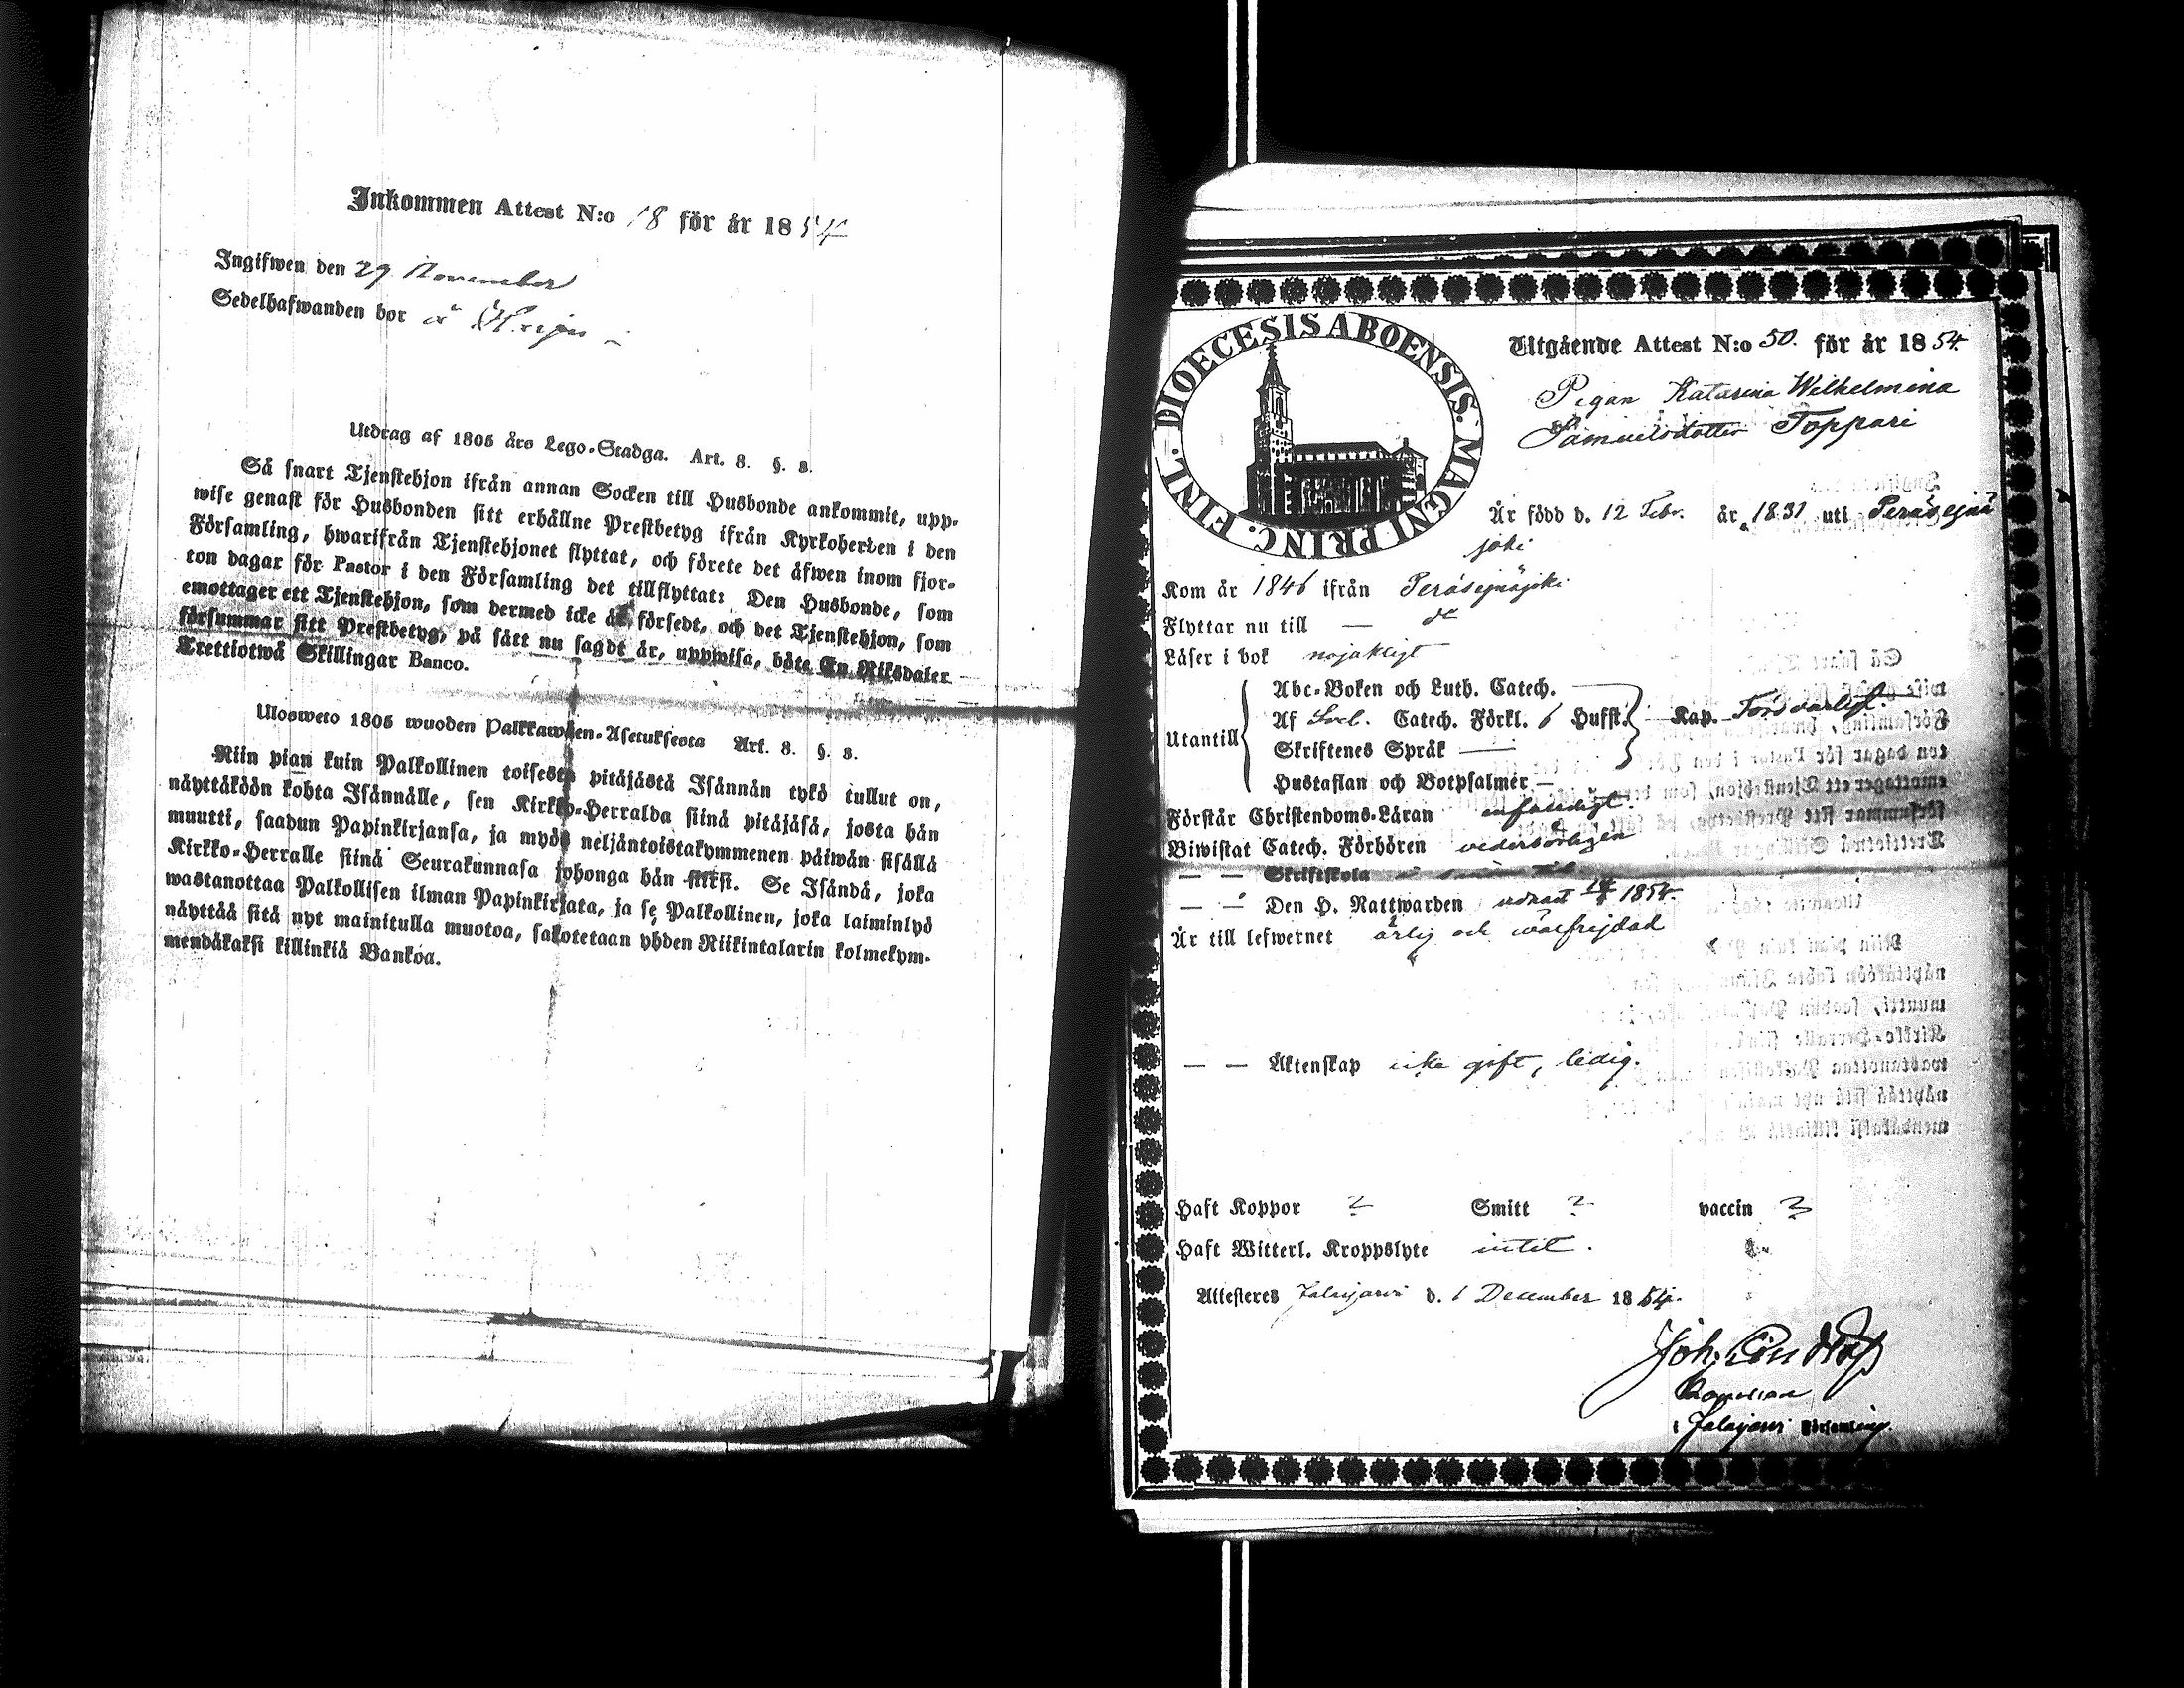 Inkommen Attest N:o 18 för år 1854
Ingifwen den 29 November
Sedelhafwanden bor å
Utdrag af 1805 års Lego-Stadga. Art. 8. §. 8.
Så snart Tjenstehjon ifrån annan Socken till Husbonde ankommit, upp-
wise genast för Husbonden sitt erhållne Prestbetyg ifrån Kyrkoherden i den
Församling, hwarifrån Tjenstehjonet flyttat, och förete det äfwen inom fjor-
ton dagar för Pastor i den Församling det tillflyttat: Den Husbonde, som
emottager ett Tjenstehjon, som dermed icke är försedt, och det Tjenstehjon, som
försummar sitt Prestbetyg, på sätt nu sagdt är, uppwisa, böte En Riksdaler
Trettiotwå Skillingar Banco.
Ulosweto 1805 wuoden Palkkawäen-Asetuksesta Art. 8. §. 8.
Niin pian kuin Palkollinen toisesta pitäjästä Isännän tykö tullut on,
näyttäköön kohta Isännälle, sen Kirkko-Herralda siinä pitäjäsä, josta hän
muutti, saadun Papinkirjansa, ja myös neljäntoistakymmenen päiwän sisällä
Kirkko-Herralle siinä Seurakunnasa johonga hän siirsi. Se Isändä, joka
wastanottaa Palkollisen ilman Papinkirjata, ja se Palkollinen, joka laiminlyö
näyttää sitä nyt mainitulla muotoa, sakotetaan yhden Riikintalarin kolmekym-
mendäkaksi killinkiä Bankoa.
DIOECESIS ABOENSIS. MAGNI PRINC. FINL.
Utgående Attest N:o 50. för år 1854.
Pigan Katarina Wilhelmina
Samuelsdotter Toppari
Är född d. 12 Febr. år 1831 uti Peräsejnä
joki
Kom år 1846 ifrån Peräsejnäjoki
Flyttar nu till — do
Läser i bok nöjaktigt
Abc-Boken och Luth. Catech.
Utantill Af Svel. Catech. Förkl. 6 Hufst. Kap. Försvarligt.
Skriftenes Språk
Hustaflan och Botpsalmer
Förstår Christendoms-Läran enfaldigt.
Biwistat Catech. Förhören vederbörligen
— — Skriftskola
— — Den H. Nattwarden 1854.
Är till lefwernet ärlig och wälfrejdad
— — Äktenskap icke gift, ledig.
Haft Koppor ? Smitt ? vaccin ?
Haft Witterl. Kroppslyte intet.
Attesteres Jalasjärvi d. 1 December 1854.
Joh.
Kapellan
i Jalasjärvi Församling.